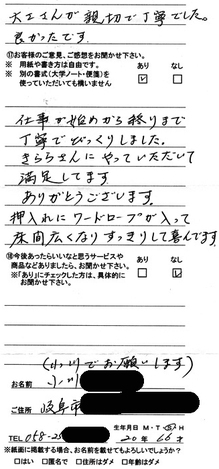 大工さんが親切で丁寧でした。
良かったです。
⑰お客様のご意見、ご感想をお聞かせ下さい。
※ 用紙や書き方は自由です。 あり なし
※ 別の書式(大学ノート・便箋)を使っていただいても構いません
仕事が始めから終りまで
丁寧でびっくりしました。
きららさんにやっていただいて
満足してます
ありがとうございます。
押入れにワードローブが入って
床間広くなりすっきりして喜んでます。
⑱今後あったらいいなと思うサービスや
商品などありましたら、お聞かせ下さい。 あり なし
※「あり」にチェックした方は、具体的に
お聞かせ下さい。
(小川でお願いします)
お名前 小川
ご住所 岐阜市
生年月日 M・T・S・H
TEL 058-25 20年 66才
※紙面に掲載する場合、お名前を載せてもよろしいでしょうか?
□はい □匿名で □住所はダメ □年齢はダメ